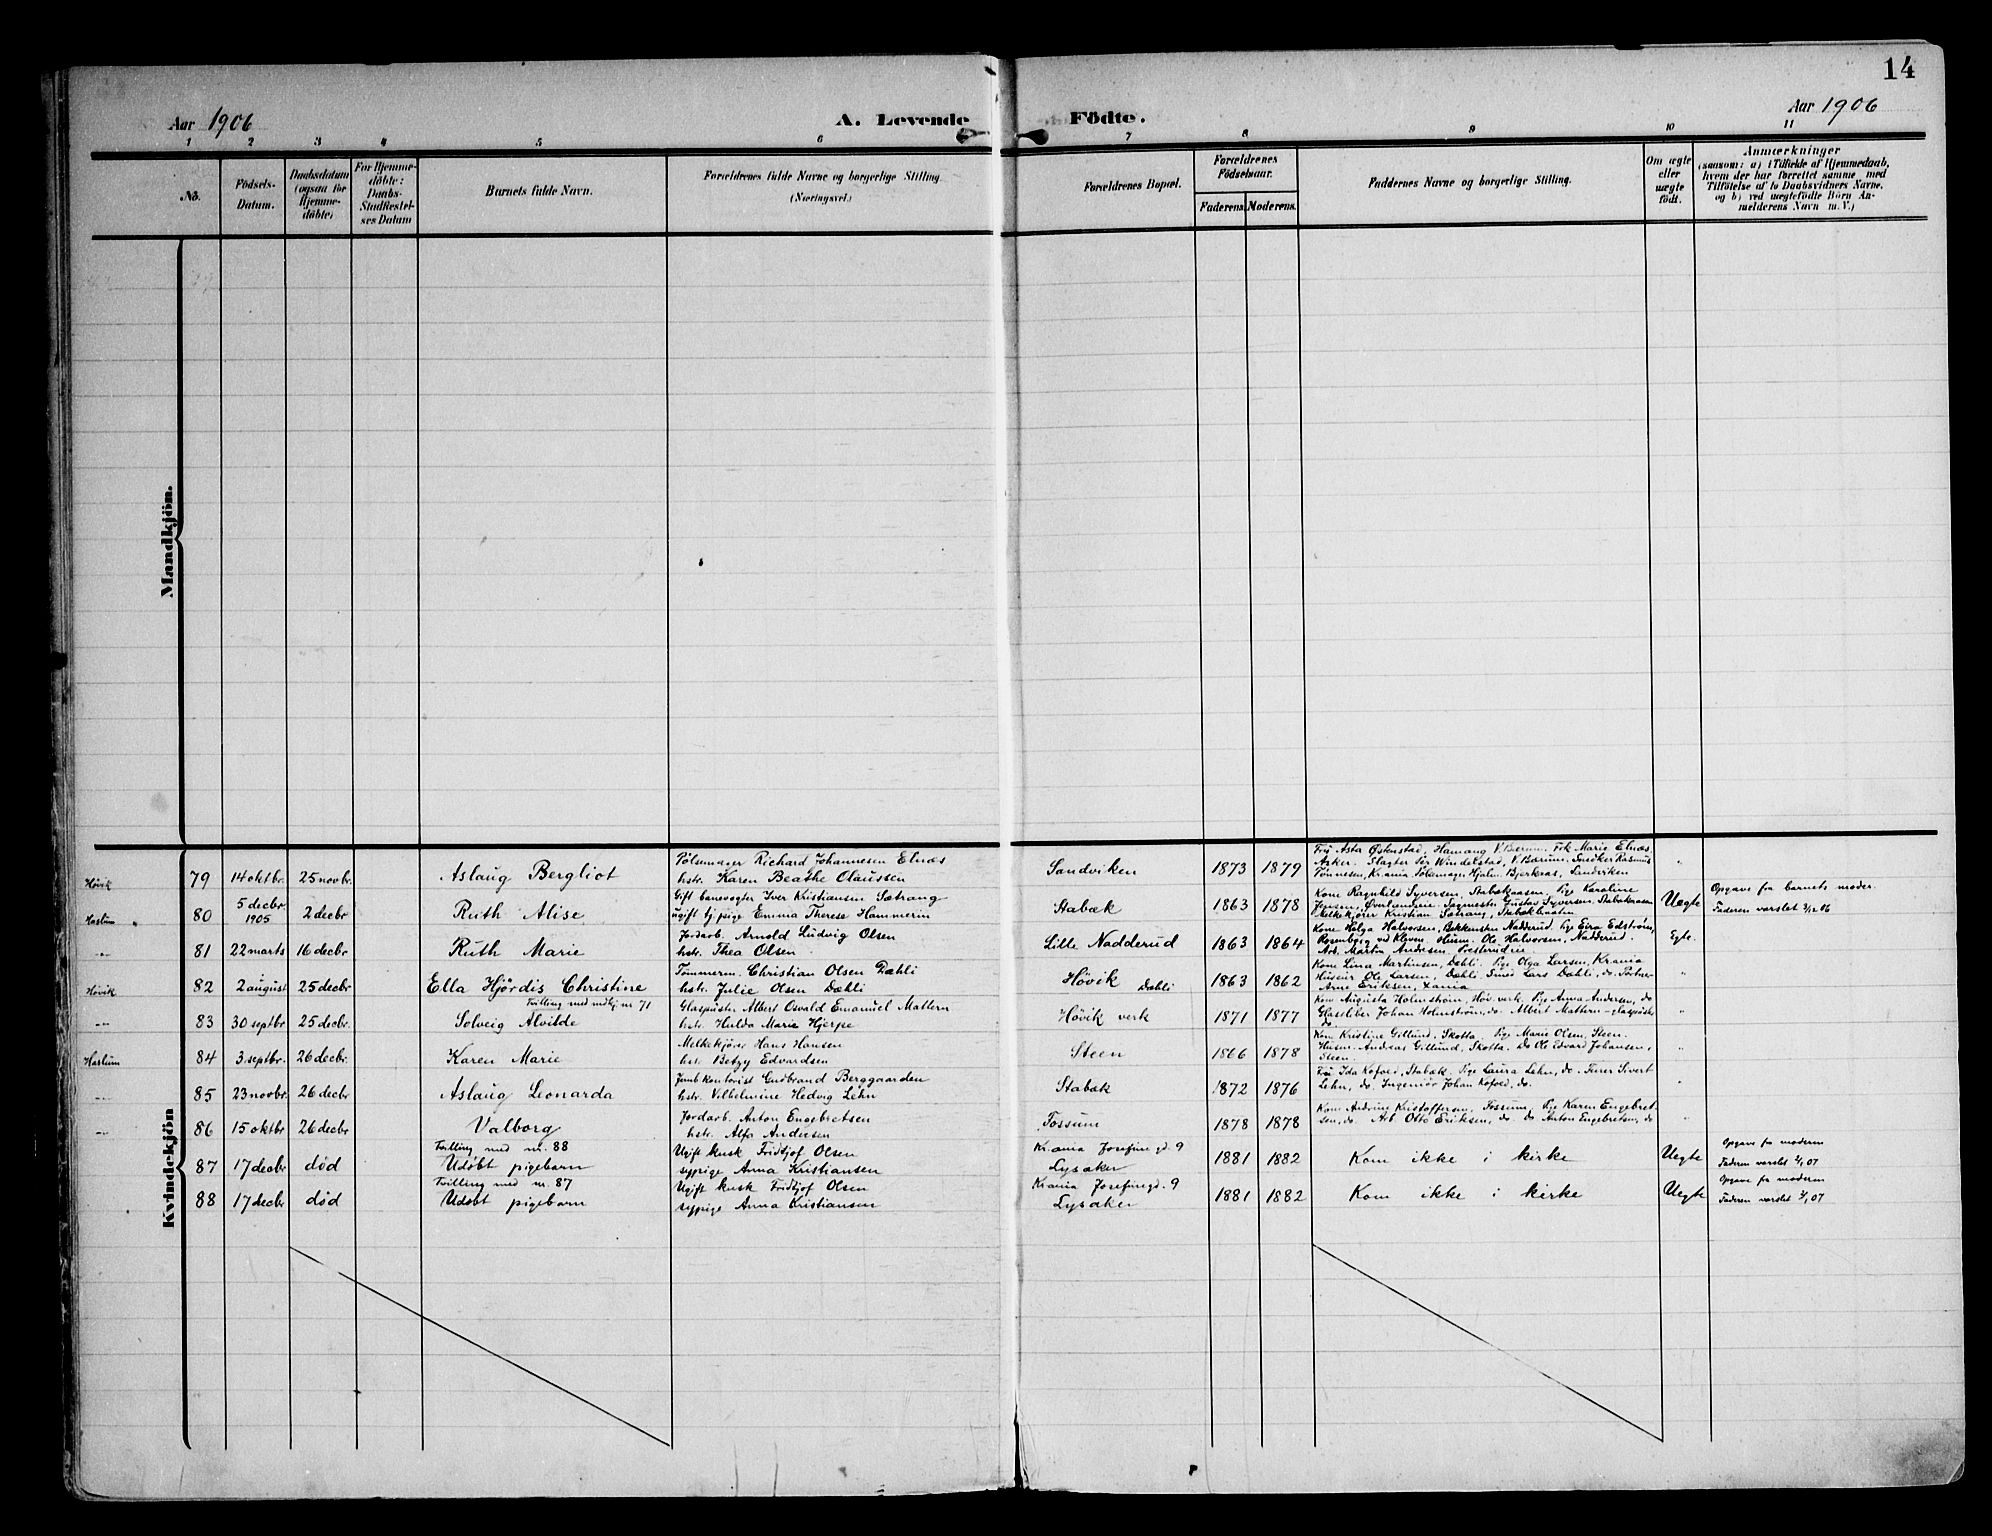 14
Aar 1906
A. Levende
Födte.
Aar 1906
1 2 3 4 5 6 7 8 9 10 11
No.
Födsels-
Datum.
Daabsdatum
(ogsaa for
Hjemme-
döbte)
For Hjemme-
döbte:
Daabs-
Stadfæstel-
ses Datum
Barnets fulde Navn.
Forældrenes fulde Navne og borgerlige Stilling
(Næringsvei.)
Forældrenes Bopæl.
Forældrenes
Födselsaar.
Faderens.
Moderens.
Faddernes Navne og borgerlige Stilling.
Om ægte
eller
uægte
födt.
Anmærkninger
(saasom: a) i Tilfælde af Hjemmedaab,
hvem der har forrettet samme, med
Tilföielse af to Daabsvidners Navne,
og b) ved uægtefödte Börn An-
melderens Navn m. V.)
Mandkjön.
Kvindekjön
Høvik
79
14 oktbr.
25 novbr.
Aslaug Bergliot
Pølsemager Richard Johannesen Elnæs
hstr. Karen Beathe Claussen
Sandviken
1873
1879
Fru Asta Østenstad, Hamang V. Bærum. Frk Marie Elnæs,
Asker. Slagter Sig Windelstad, V. Bærum. Snedker Rasmus
Tønnesen, Krania Pølsemagr Hjalm. Bjerknæs, Sandviken
"
Haslum
80
5 decbr.
1905
2 decbr
Ruth Alise
Gift banevogter Iver Kristiansen Sætrang
ugift tj. pige Emma Therese Hammerin
Stabæk
1863
1878
Kone Ragnhild Syversen, Stabækaasen, Pige Karoline
Jensen, Øverlandseie. Sagmestr Gustav Syversen, Stabækaasen
Melkekjører Kristian Sætrang, Stabækbraaten
Uegte
Opgave fra barnets moder.
Faderen varslet 3/12 06
-"-
81
22 marts
16 decbr
Ruth Marie
Jordarb. Arnold Ludvig Olsen
hstr. Thea Olsen
Lille Nadderud
1863
1864
Kone Helga Halvorsen, Bekkensten Nadderud. Pige Eira Edstrøm,
Rosenberg ved Kleven. Husm. Ole Halvorsen, Nadderud.
Arb. Martin Andesen, Presterudeie
Egte.
Høvik
82
2 august
25 decbr
Ella Hjørdis Christine
Tømmerm. Christian Olsen Dæhli
hstr. Julie Olsen Dæhli
Høvik Dæhli
1863
1862
Kone Lina Martinsen, Dæhli. Pige Olga Larsen, Krania
Huseier Ole Larsen, Dæhli. Smed Lars Dæhli, do.
Arne Eriksen, Xania
"
-"-
83
30 septbr
25 decbr.
Tvilling med mdkj nr 71
Solveig Alvilde
Glaspuster Albert Osvald Emanuel Mattern
hstr. Hulda Marie Hjerpe
Høvik verk
1871
1877
Kone Augusta Holmstrøm, Høv. verk. Pige Anna Andersen, do
Glassliber Johan Holmstrøm, do. Albert Mattern - glaspuster
do
"
Haslum
84
3. septbr.
26 decbr.
Karen Marie
Melkekjører Hans Hansen
hstr. Betzy Edvardsen
Steen
1866
1878
Kone Kristine Gillund, Skotta. Pige Marie Olsen, Steen.
Husm. Andreas Gillund, Skotta. Do Ole Edvard Johansen,
Steen.
"
-"-
85
23 novbr.
26 decbr
Aslaug Leonarda
Jernb kontorist Gudbrand Berggaarden
hstr. Vilhelmine Hedvig Lehn
Stabæk
1872
1876
Fru Ida Kofoed, Stabæk. Pige Laura Lehn, do. Sivert
Lehn, do. Ingeniør Johan Kofoed, do.
"
-"-
86
15 oktbr
26 decbr
Valborg
Jordarb. Anton Engebretsen
hstr. Alfa Andersen
Fossum
1878
1878
Kone Andrine Kristoffersen, Fossum. Pige Karen Engebret-
sen, do. Arb. Otto Eriksen, do. do Anton Engebretsen, do
"
87
17 decbr
død
Tvilling med nr. 88
Udøbt pigebarn
Ugift kusk Fridtjof Olsen
sypige Anna Kristiansen
Krania Josefinegd. 9
Lysaker
1881
1882
Kom ikke i kirke
Uegte
Opgave fra moderen
Faderen varslet 2/1 07
88
17 decbr
død
Tvilling med nr. 87
Udøbt pigebarn
Ugift kusk Fridtjof Olsen
sypige Anna Kristiansen
Krania Josefinegd. 9
Lysaker
1881
1882
Kom ikke i kirke
Uegte
Opgave fra moderen
Faderen varslet 2/1 07